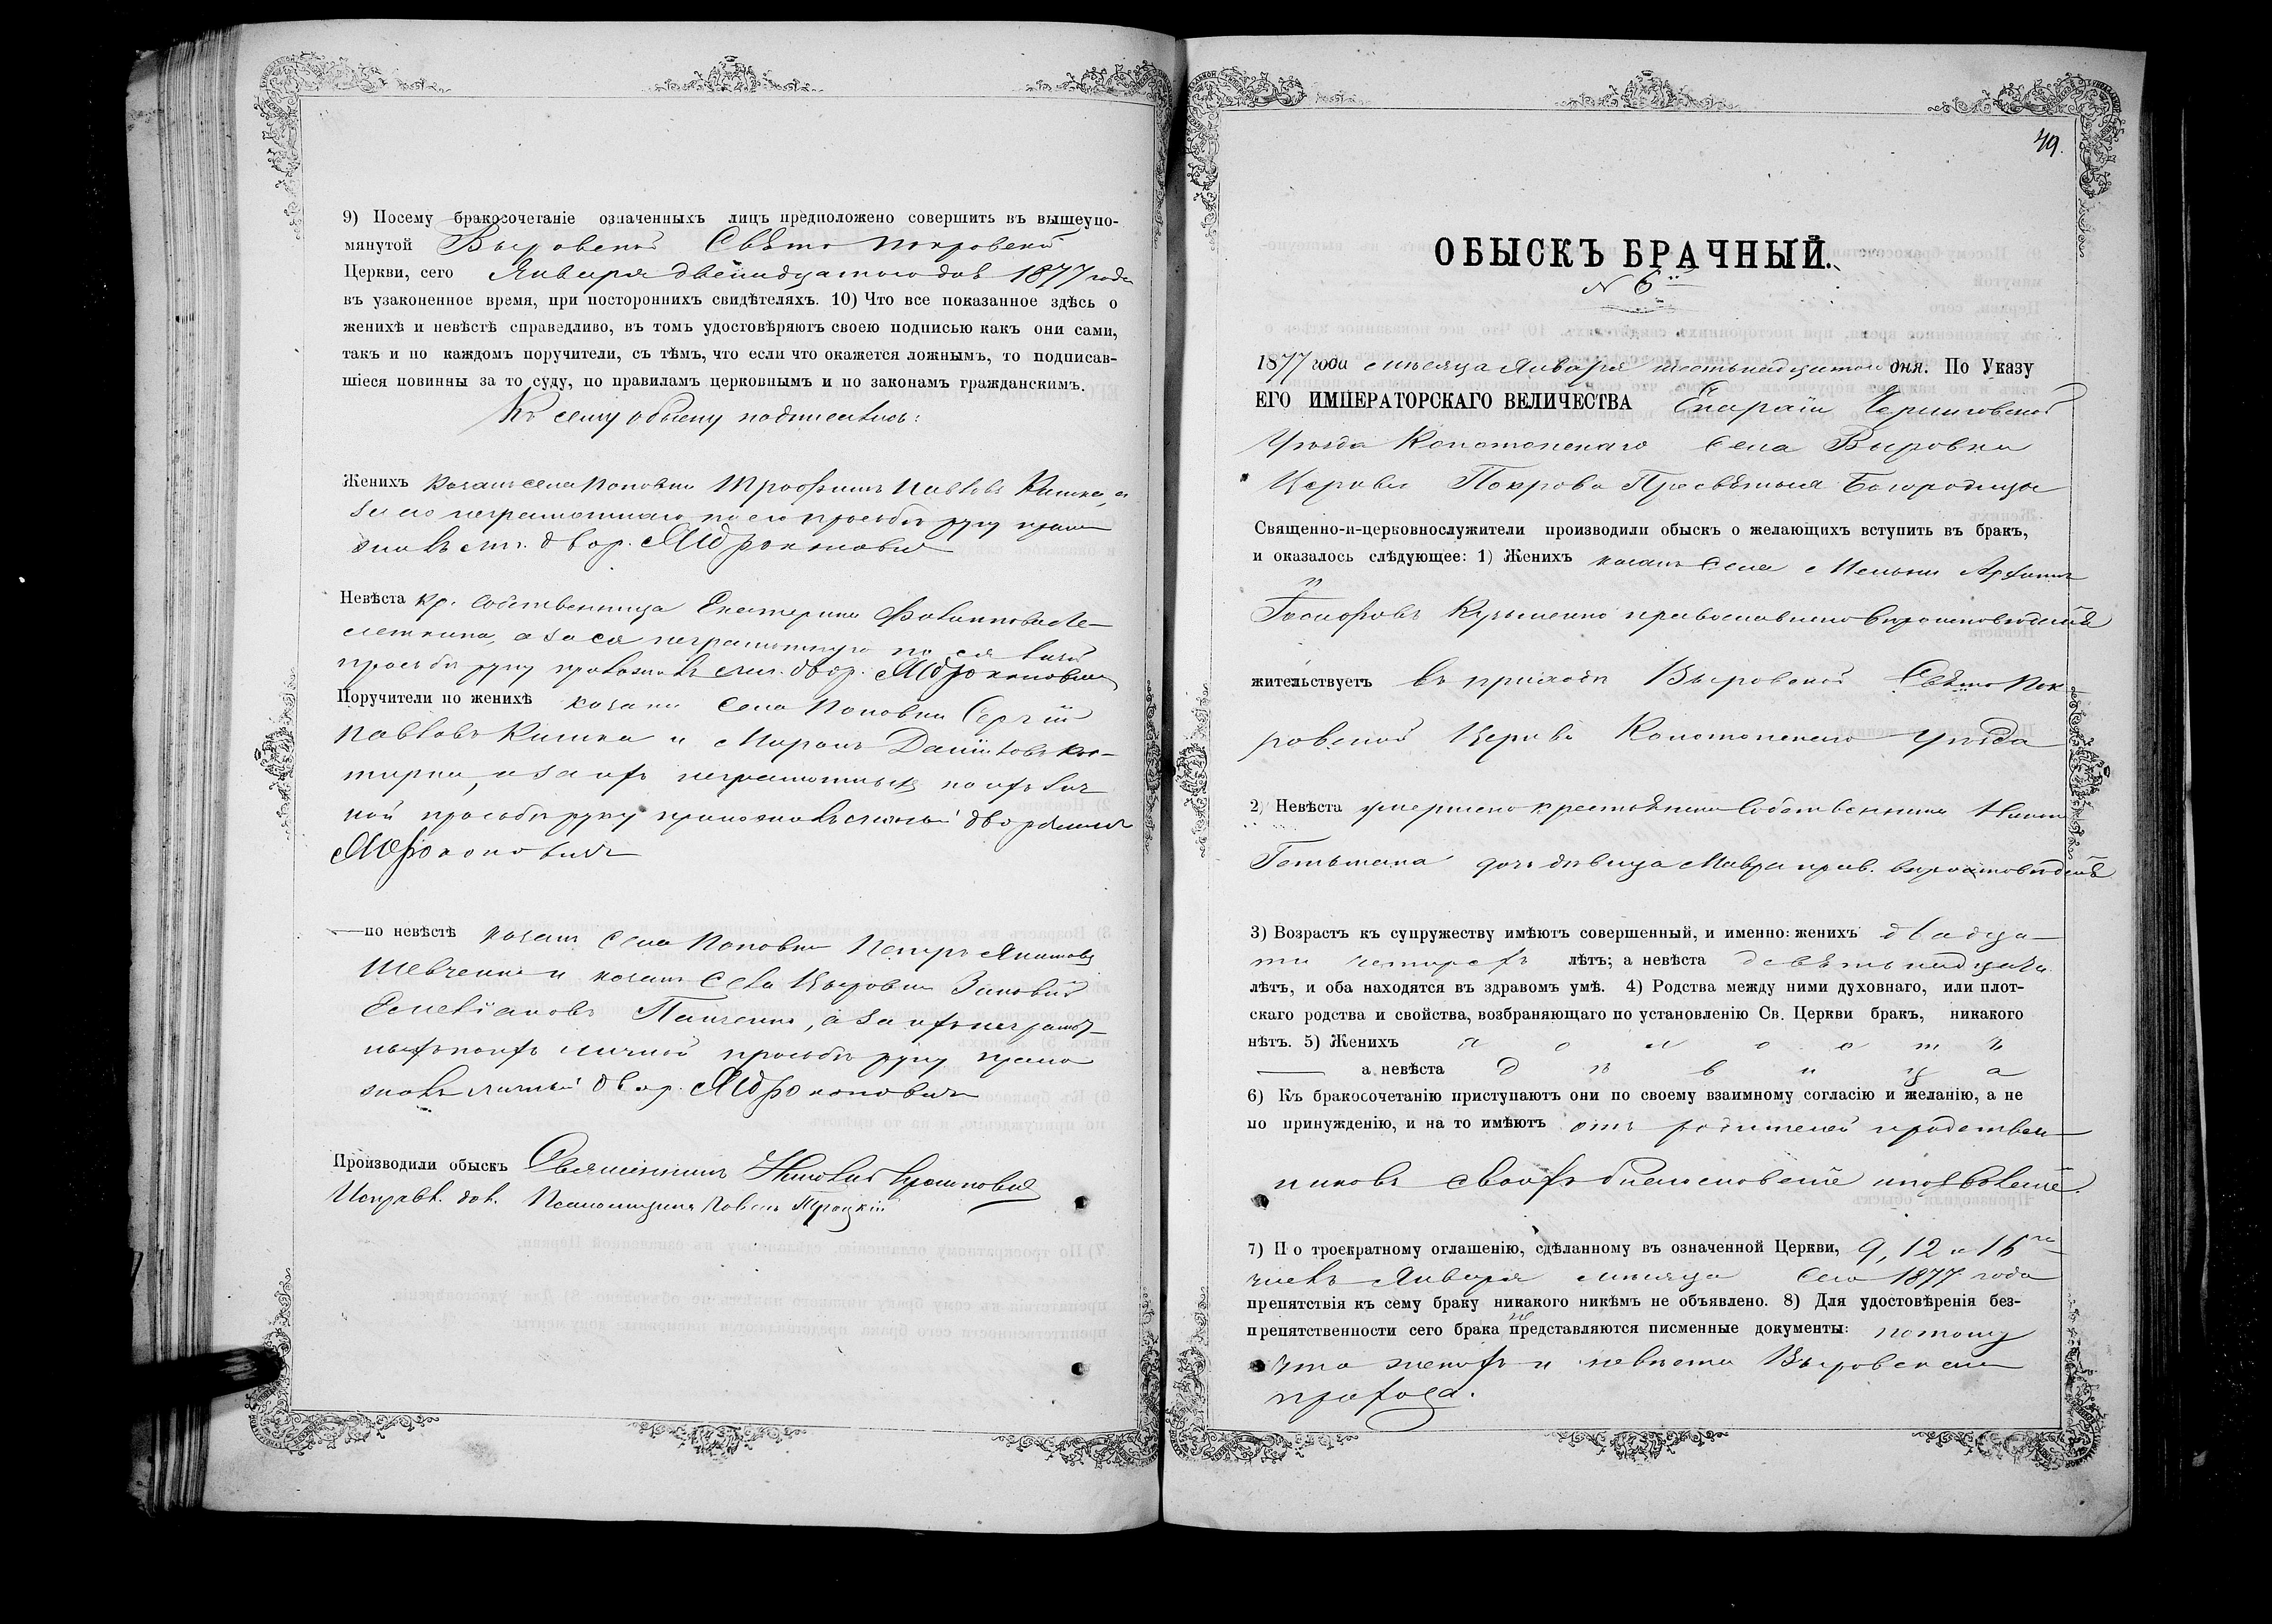 9) Посему бракосочетаніе означенныхъ лицъ предположено совершить въ вышеупо-
мянутой Выровской Свято Покровской
Церкви, сего Января двенадцатого дня 1877 года
въ узаконенное время, при постороннихъ свидѣтеляхъ. 10) Что все показанное здѣсь о
женихѣ и невѣстѣ справедливо, въ томъ удостовѣряютъ своею подписью какъ они сами,
такъ и по каждомъ поручители, съ тѣмъ, что если что окажется ложнымъ, то подписав-
шіеся повинны за то суду, по правиламъ церковнымъ и по законамъ гражданскимъ.
Къ сему обыску подписались:
Женихъ козакъ села Поповки Трофимъ Павловъ Кишка, а
за его неграмотнаго по его прозьбѣ руку прило
жилъ лич. двор.
Невѣста кр. собственница Екатерина
а за ея неграмотную по ея личной
прозьбѣ руку приложилъ лич. двор.
Поручители по женихѣ козаки села Поповки Сергій
Павловъ Кишка и Миронъ Даніиловъ
а за ихъ неграмотныхъ по ихъ лич
ной прозьбѣ руку приложилъ личный дворянинъ
—по невѣстѣ козакъ села Поповки Петръ Якимовъ
Шевченко и козакъ села Выровки Зиновій
Емеліановъ Панченко, а за ихъ неграмот-
ныхъ по ихъ личной прозьбѣ руку прило
жилъ личный двор.
Производили обыскъ Священникъ Николай
Исправл. дол. Псаломщика Павелъ Троцкій
49.
ОБЫСКЪ БРАЧНЫЙ.
N 6й
1877 года мѣсяца Января шестьнадцатого дня. По Указу
ЕГО ИМПЕРАТОРСКАГО ВЕЛИЧЕСТВА Епархіи Черниговской
Уѣзда Конотопскаго Села Выровки
Церкви Покрова Пресвятыя Богородицы
Священно-и-церковнослужители производили обыскъ о желающихъ вступить въ бракъ,
и оказалось слѣдующее: 1) Женихъ козакъ Села
Кузьменко православнаго вѣроисповѣданія
жительствуетъ въ приходѣ Выровской Свято Пок-
ровской Церкви Конотопскаго Уѣзда
2) Невѣста умершаго крестьянина Собственника
Гетьмана дочь дѣвица Мавра прав. вѣроисповѣданія
3) Возрастъ къ супружеству имѣютъ совершенный, и именно: женихъ двадца-
ти четырехъ лѣтъ; а невѣста девятьнадцати
лѣтъ, и оба находятся въ здравомъ умѣ. 4) Родства между ними духовнаго, или плот-
скаго родства и свойства, возбраняющаго по установленію Св. Церкви бракъ, никакого
нѣтъ. 5) Женихъ холостъ
— а невѣста дѣвица
6) Къ бракосочетанію приступаютъ они по своему взаимному согласію и желанію, а не
по принужденію, и на то имѣютъ отъ родителей и родствен-
никовъ своихъ благословеніе и позволеніе.
7) По троекратному оглашенію, сдѣланному въ означенной Церкви, 9, 12 и 16го
числъ Января мѣсяца сего 1877 года
препятствія къ сему браку никакого никѣмъ не объявлено. 8) Для удостовѣренія без-
препятственности сего брака не представляются писменные документы: потому
что женихъ и невѣста Выровскаго
прихода.